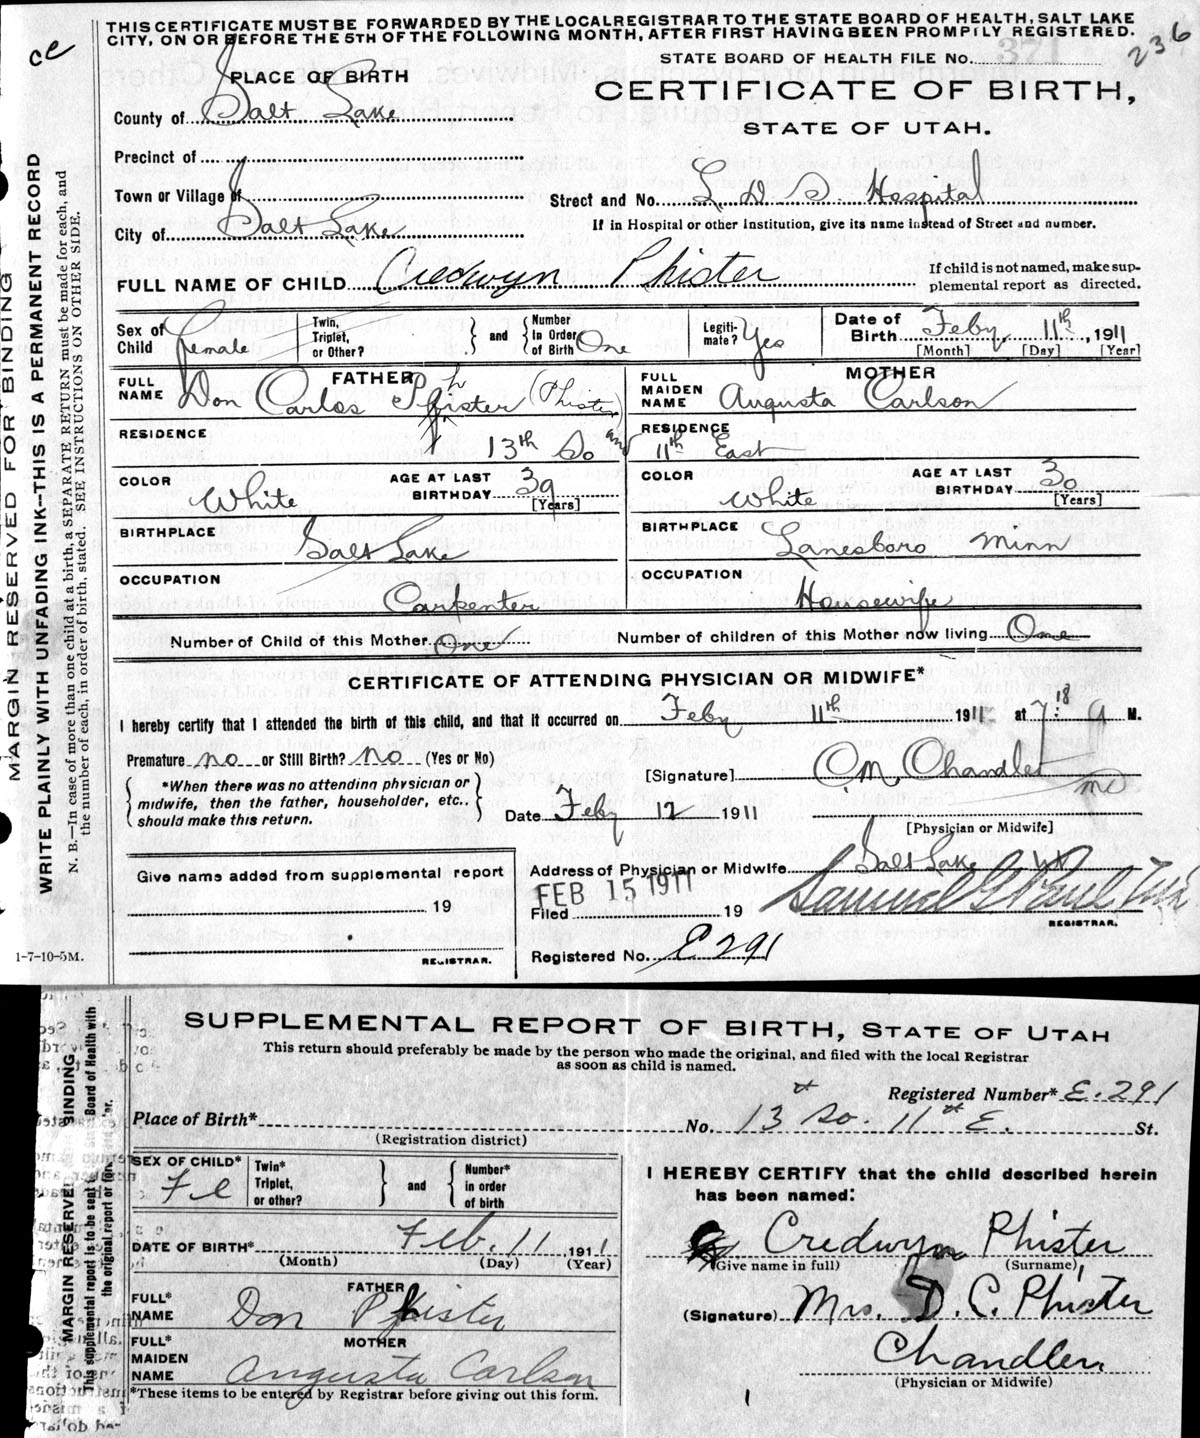 THIS CERTIFICATE MUST BE FORWARDED BY THE LOCAL REGISTRAR TO THE STATE BOARD OF HEALTH, SALT LAKE
CITY, ON OR BEFORE THE 5TH OF THE FOLLOWING MONTH, AFTER FIRST HAVING BEEN PROMPILY REGISTERED.
ce
236
STATE BOARD OF HEALTH FILE No.
PLACE OF BIRTH
CERTIFICATE OF BIRTH,
STATE OF UTAH.
County of Salt Lake
Precinct of
Town or Village of
Street and No. L. D. S. Hospital
City of Salt Lake
If in Hospital or other Institution, give its name instead of Street and number.
FULL NAME OF CHILD Credwyn Phister
If child is not named, make sup-
plemental report as directed.
Sex of Child female
Twin, Triplet, or Other?
and
Number In Order of Birth One
Legiti-mate? Yes
Date of Birth Feby. 11th, 1911
[Month] [Day] [Year]
FATHER
FULL NAME Don Carlos Phister (Phister)
MOTHER
FULL MAIDEN NAME Augusta Carlson
RESIDENCE 13th So and
RESIDENCE 11th East
COLOR White
AGE AT LAST BIRTHDAY 39 [Years]
COLOR White
AGE AT LAST BIRTHDAY 30 [Years]
BIRTHPLACE Salt Lake
BIRTHPLACE Lanesboro Minn
OCCUPATION Carpenter
OCCUPATION Housewife
Number of Child of this Mother One
Number of children of this Mother now living One
CERTIFICATE OF ATTENDING PHYSICIAN OR MIDWIFE*
I hereby certify that I attended the birth of this child, and that it occurred on Feby 11th 1911 at 7:18 a M.
Premature no or Still Birth? no (Yes or No)
[Signature] C. M. Chandler MD
*When there was no attending physician or
midwife, then the father, householder, etc.,
should make this return.
Date Feby 12 1911
[Physician or Midwife]
Give name added from supplemental report
19
REGISTRAR.
Address of Physician or Midwife Salt Lake
FEB 15 1911
Filed 19
Samuel G Paul
REGISTRAR.
Registered No. E 291
1-7-10-5M.
MARGIN RESERVED FOR BINDING
WRITE PLAINLY WITH UNFADING INK--THIS IS A PERMANENT RECORD
N. B.—In case of more than one child at a birth, a SEPARATE RETURN must be made for each, and
the number of each, in order of birth, stated. SEE INSTRUCTIONS ON OTHER SIDE.
SUPPLEMENTAL REPORT OF BIRTH, STATE OF UTAH
This return should preferably be made by the person who made the original, and filed with the local Registrar
as soon as child is named.
Registered Number* E. 291
Place of Birth*
No. 13th So. 11th E. St.
(Registration district)
SEX OF CHILD* Fe
Twin* Triplet, or other?
and
Number* in order of birth
I HEREBY CERTIFY that the child described herein
has been named:
DATE OF BIRTH* Feb. 11 1911
(Month) (Day) (Year)
Credwyn Phister
(Give name in full) (Surname)
FATHER
FULL* NAME Don Phister
(Signature) Mrs. D. C. Phister
MOTHER
FULL* MAIDEN NAME Augusta Carlson
Chandler
(Physician or Midwife)
*These items to be entered by Registrar before giving out this form.
MARGIN RESERVE BINDING
This supplemental report is to be sent Board of Health with
the original report or